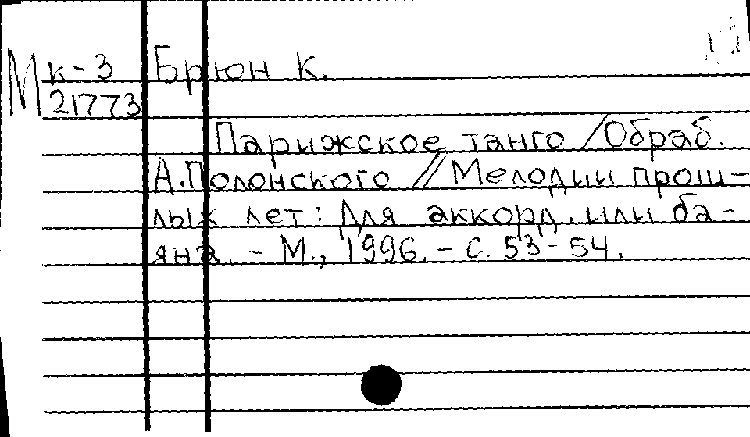 М к-3 Брюн К.
21773
Парижское танго /Обраб.
А.Полонского // Мелодии прош-
лых лет: Для аккорд. или ба-
яна. - М., 1996. - С. 53-54.